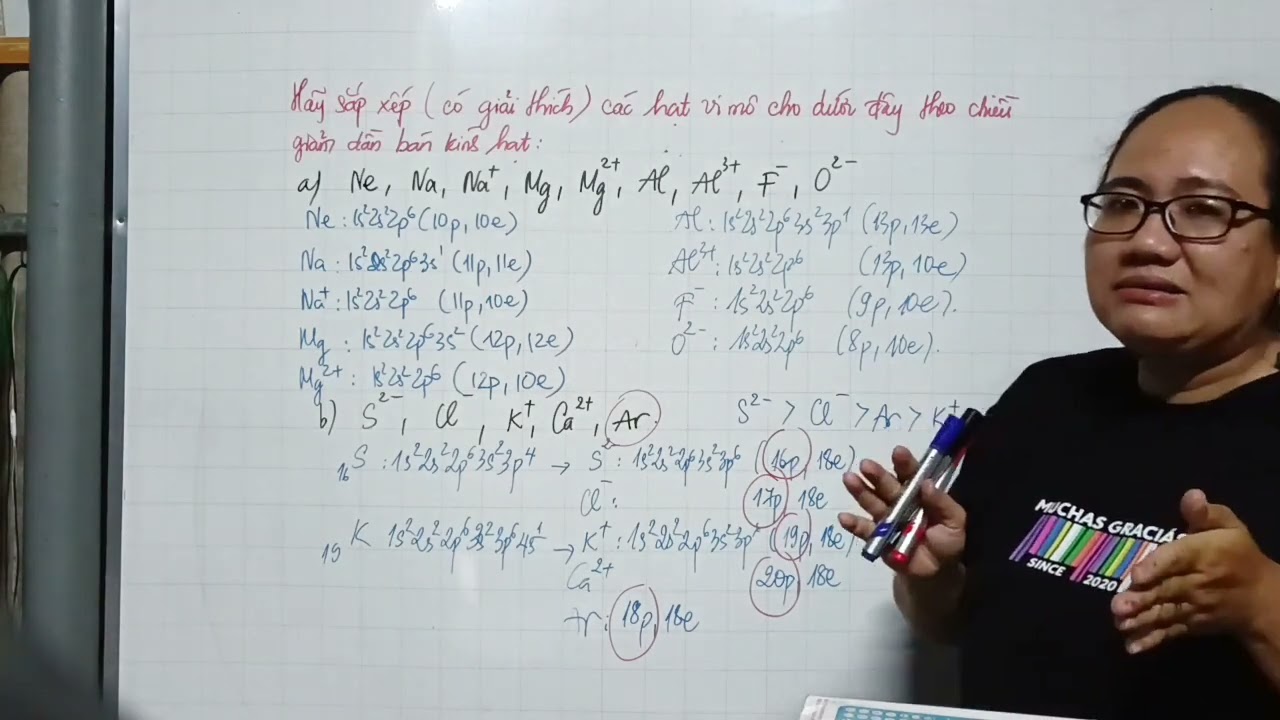 Hãy sắp xếp (có giải thích) các hạt vi mô cho dưới đây theo chiều
giảm dần bán kính hạt:
a) Ne, Na, Na⁺, Mg, Mg²⁺, Al, Al³⁺, F⁻, O²⁻
Ne: 1s²2s²2p⁶ (10p, 10e)
Na: 1s²2s²2p⁶3s¹ (11p, 11e)
Na⁺: 1s²2s²2p⁶ (11p, 10e)
Mg: 1s²2s²2p⁶3s² (12p, 12e)
Mg²⁺: 1s²2s²2p⁶ (12p, 10e)
Al: 1s²2s²2p⁶3s²3p¹ (13p, 13e)
Al³⁺: 1s²2s²2p⁶ (13p, 10e)
F⁻: 1s²2s²2p⁶ (9p, 10e).
O²⁻: 1s²2s²2p⁶ (8p, 10e).
b) S²⁻, Cl⁻, K⁺, Ca²⁺, Ar.
S²⁻ > Cl⁻ > Ar > K⁺
₁₆S: 1s²2s²2p⁶3s²3p⁴ → S²⁻: 1s²2s²2p⁶3s²3p⁶ (16p, 18e)
Cl⁻: 17p 18e
₁₉K 1s²2s²2p⁶3s²3p⁶4s¹ → K⁺: 1s²2s²2p⁶3s²3p⁶ (19p, 18e)
Ca²⁺ 20p 18e
Ar: 18p, 18e
MUCHAS GRACIAS
SINCE 2020